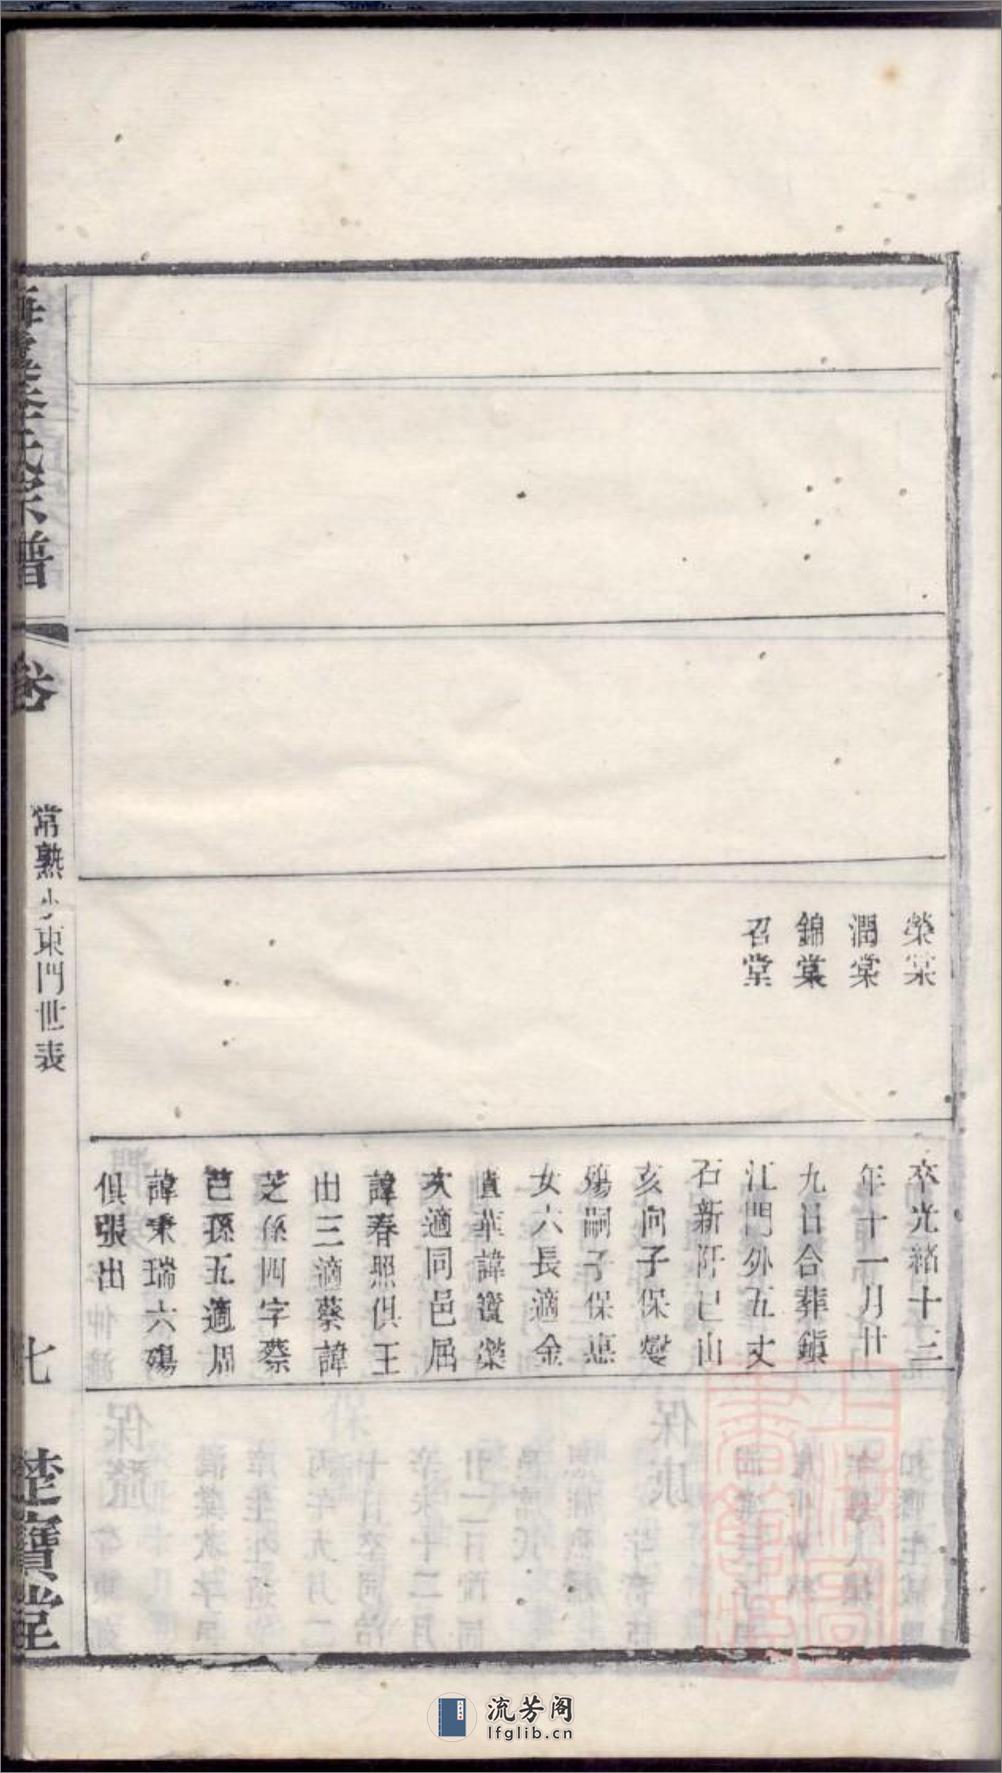 榮棠
潤棠
錦棠
召棠
卒光緒十三
年十一月廿
九日合葬鎮
江門外五丈
石新阡巳山
亥向子保燮
殤嗣子保悳
女六長適金
匱華諱瓚灤
次適同邑屈
諱春照俱王
出三適蔡諱
芝孫四字蔡
芭孫五適周
諱秉瑞六殤
俱張出
氏宗譜
卷
常熟小東門世表
七
楚寶堂
流芳阁
lfglib.cn